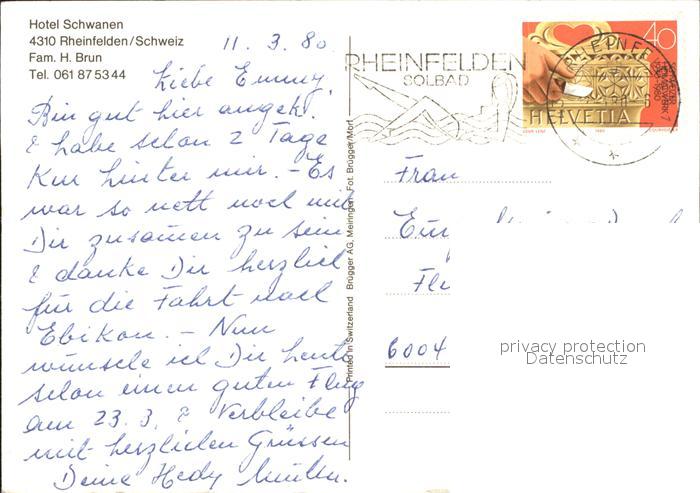 Hotel Schwanen
4310 Rheinfelden/Schweiz
Fam. H. Brun
Tel. 061 87 53 44
11. 3. 80
Liebe Emmy,
Bin gut hier angek.
& habe schon 2 Tage
Kur hinter mir. – Es
war so nett noch mit
Dir zusamen zu sein
& danke Dir herzlich
für die Fahrt nach
Ebikon. – Nun
wünsche ich Dir heute
schon einen guten Flug
am 23. 3. & verbleibe
mit herzlichen Grüssen
Deine Hedy
Printed in Switzerland Brügger AG, Meiringen, Fot. Brügger/Morf
RHEINFELDEN
SOLBAD
40
HELVETIA
Frau
6004
privacy protection
Datenschutz